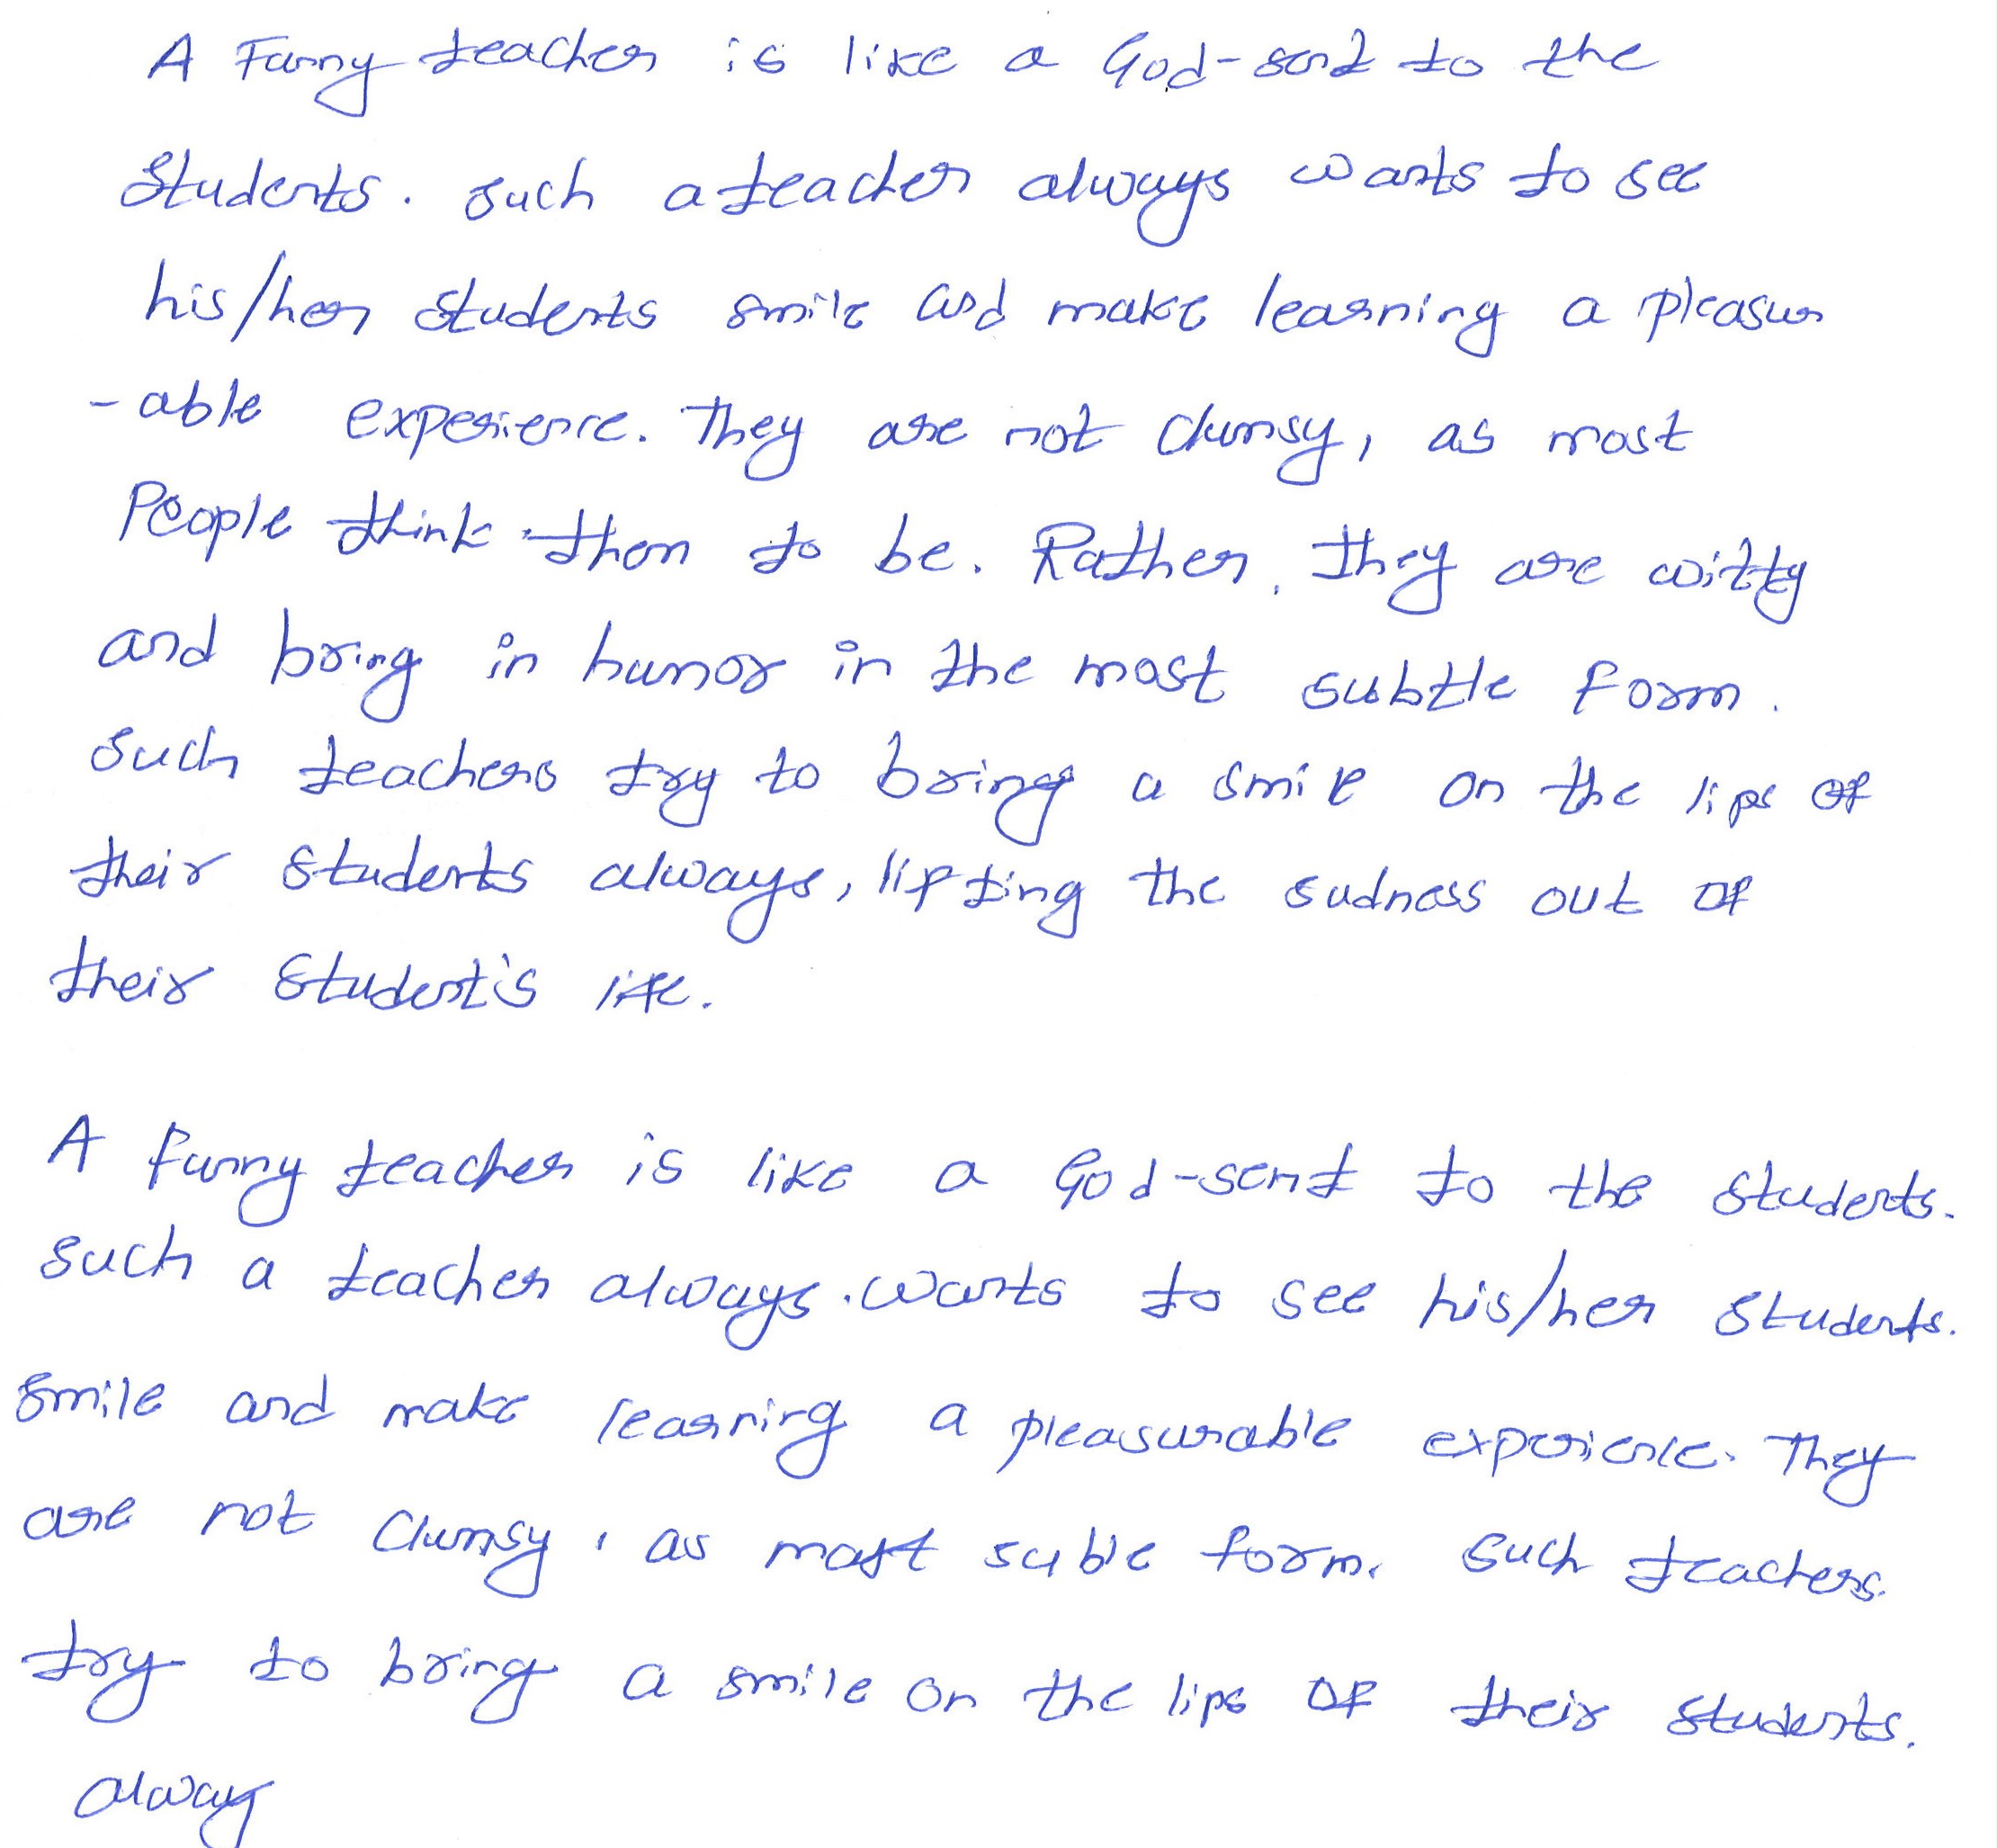 A Funny teacher is like a God-sent to the
students. such a teacher always wants to see
his/her students smile and make learning a pleasur
-able experience. They are not clumsy, as most
People think them to be. Rather, they are witty
and bring in humor in the most subtle form.
such teachers try to bring a smile on the lips of
their students always, lifting the sadness out of
their student's life.
A funny teacher is like a God-sent to the students.
such a teacher always. wants to see his/her students.
smile and make learning a pleasurable experience. They
are not clumsy, as most suble form. such teachers.
try to bring a smile on the lips of their students.
alway